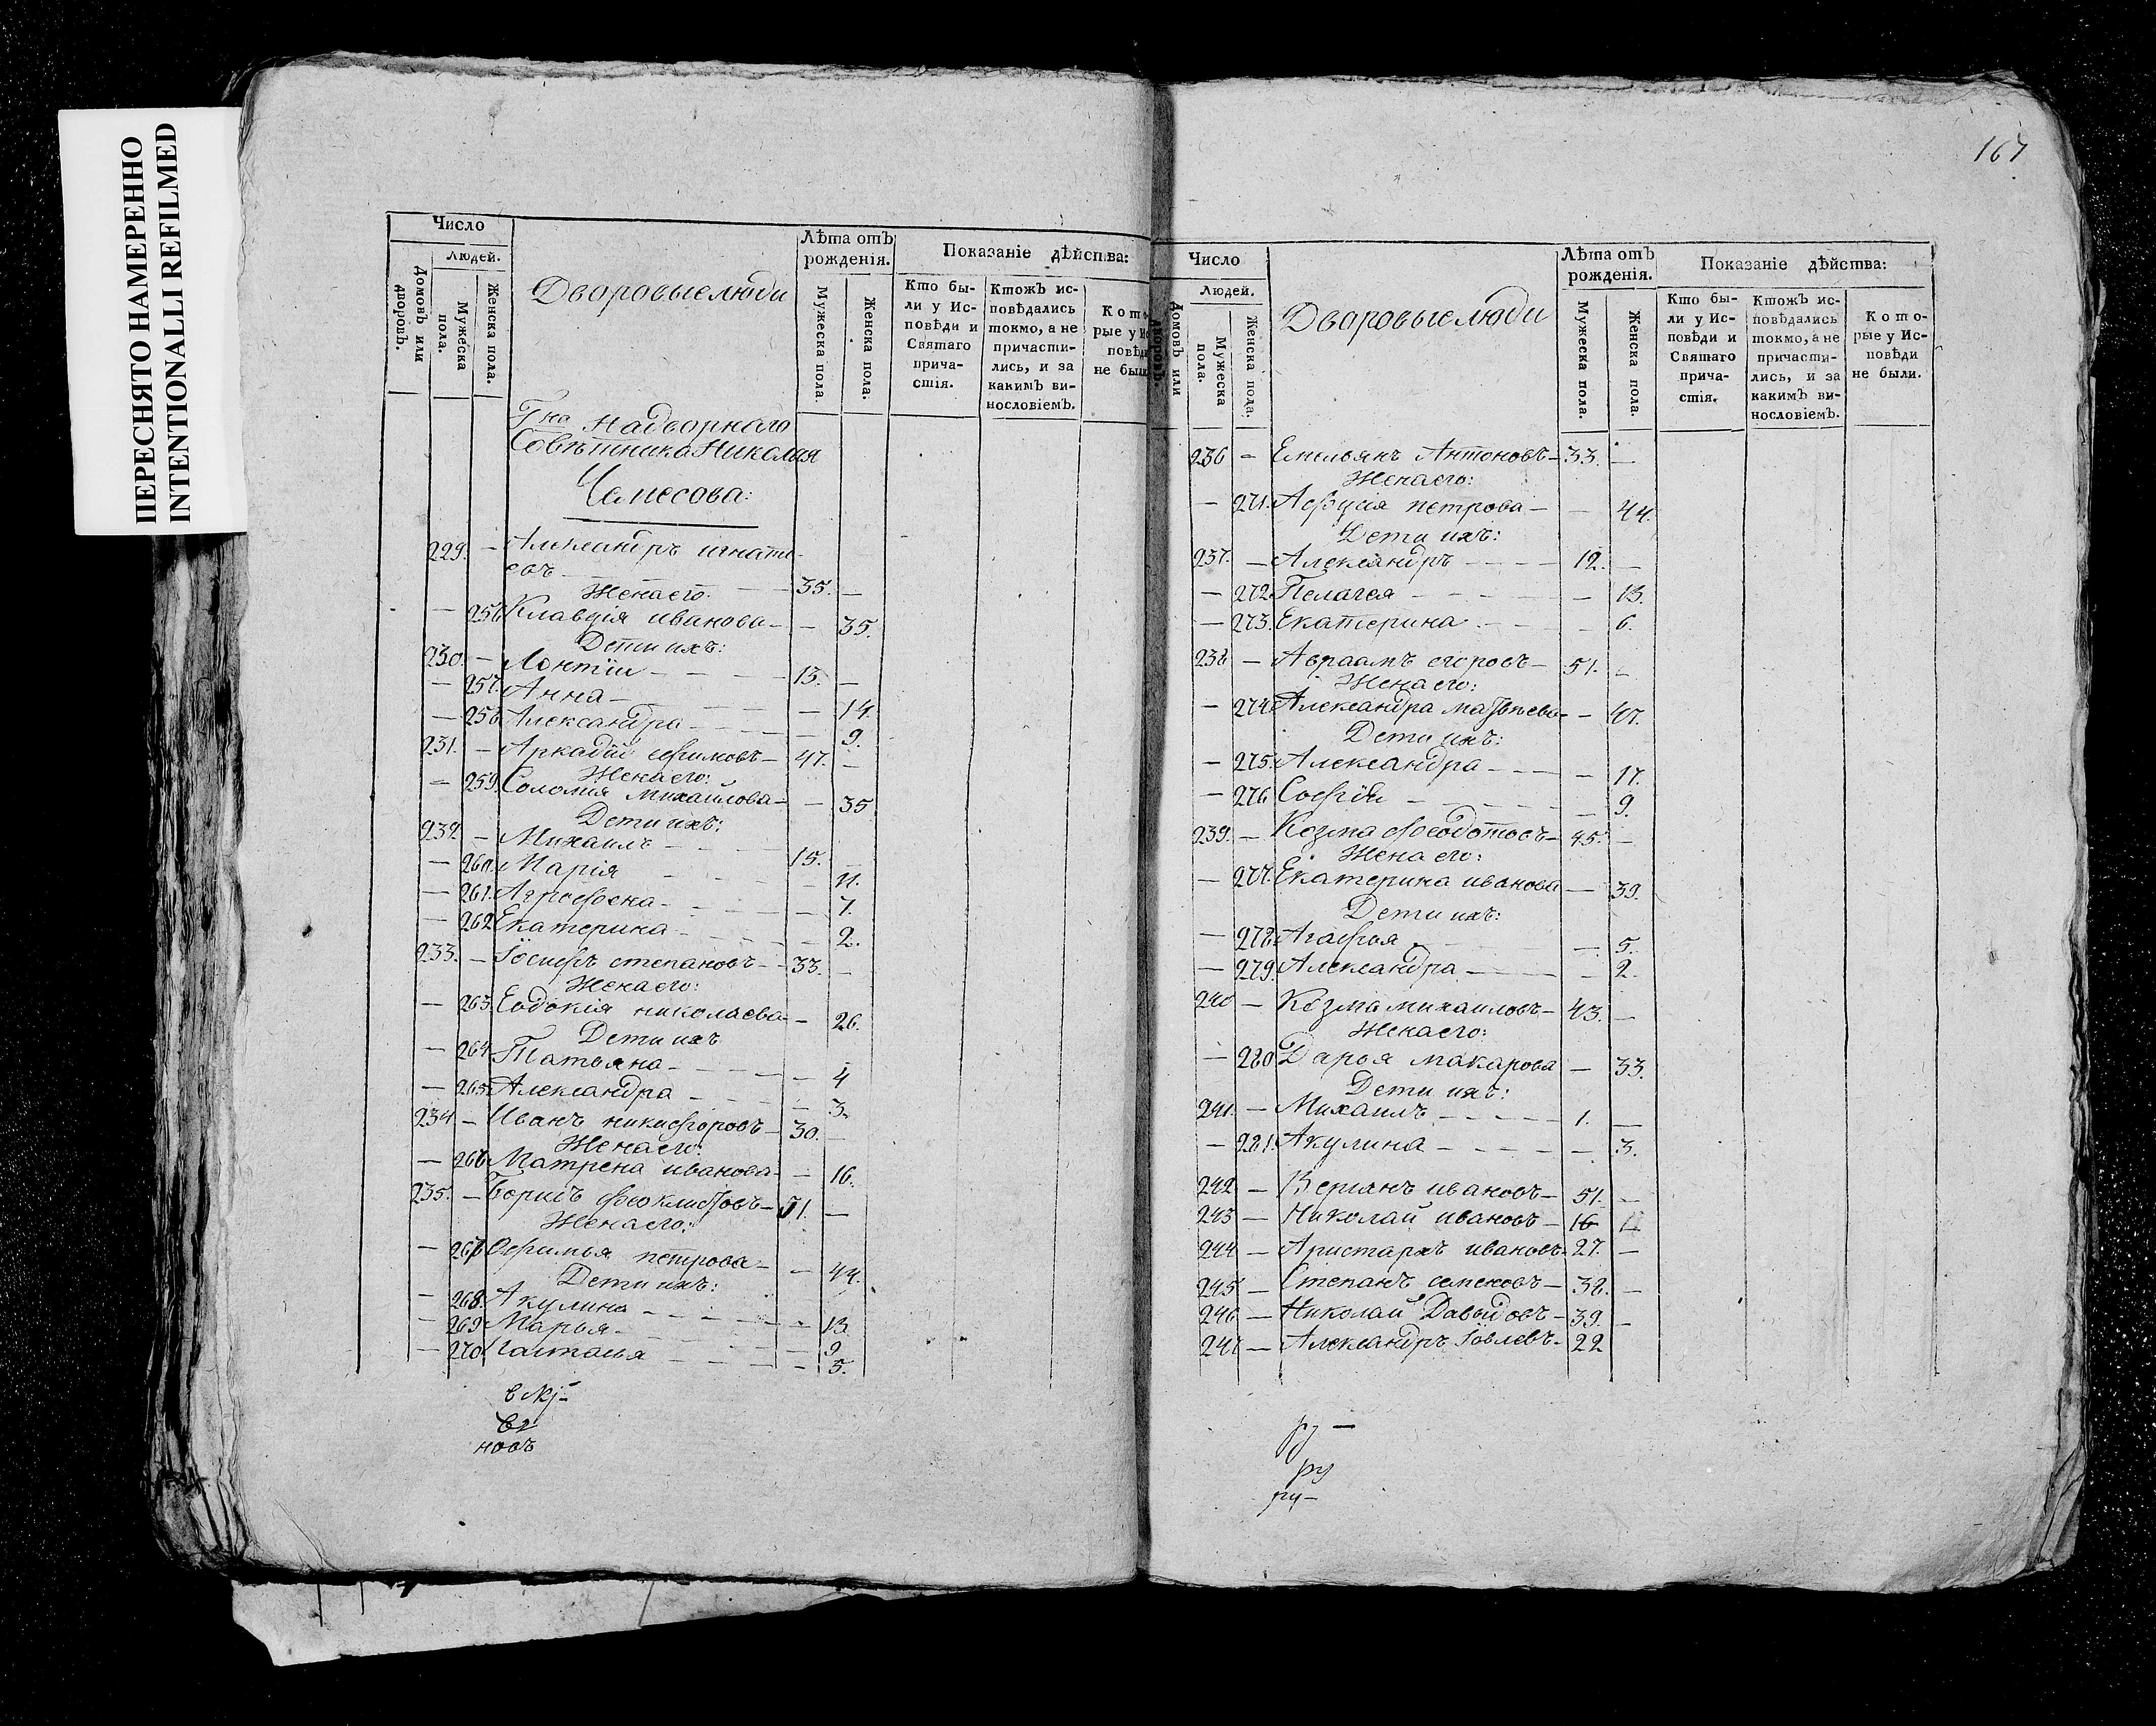 ПЕРЕСНЯТО НАМЕРЕННО
INTENTIONALLI REFILMED
Число
Людей.
Домовъ или дворовъ.
Мужеска пола.
Женска пола.
Дворовые люди
Лѣта отъ рожденія.
Мужеска пола.
Женска пола.
Показаніе дѣйства:
Кто бы-
ли у Ис-
повѣди и
Святаго
прича-
стія.
Ктожъ ис-
повѣдались
токмо, а не
причасти-
лись, и за
какимъ ви-
нословіемъ.
Кото
рые у Ис
повѣди
не были
Гна Надворнаго
Совѣтника Николая
Чемесова:
229. — Александръ игнати-
евъ — 35. —
Жена его:
— 256 Клавдія иванова — — 35.
Дети ихъ:
230. — Лонтіи — 13. —
— 257. Анна — — 14.
— 258 Александра — — 9.
231. — Аркадій ефимовъ — 47. —
Жена его:
— 259. Соломия михаилова — — 35
Дети ихъ:
232 — Михаилъ — 15. —
— 260. Марія — 11.
— 261. Агрофена — — 7.
— 262 Екатерина — — 2.
233. — Іосифъ степановъ — 33. —
Жена его:
— 263. Евдокія николаева — — 26.
Дети ихъ
— 264 Татьяна — — 4
— 265. Александра — — 3.
234 — Иванъ никифоровъ — 30. —
Жена его:
— 266 Матрена иванова — — 16.
235. — Борисъ феоклистовъ — 51. —
Жена его:
— 267 Офимья петрова — — 44.
Дети ихъ:
— 268. Акулина — — 13
— 269 Марья — — 9
— 270 Настасья — — 5.
новъ
167
Число
Людей.
Домовъ или дворовъ.
Мужеска пола.
Женска пола.
Дворовые люди
Лѣта отъ рожденія.
Мужеска пола.
Женска пола.
Показаніе дѣйства:
Кто бы-
ли у Ис-
повѣди и
Святаго
прича-
стія.
Ктожъ ис-
повѣдались
токмо, а не
причасти-
лись, и за
какимъ ви-
нословіемъ.
Кото-
рые у Ис-
повѣди
не были.
236 — Емельянъ Антоновъ — 33. —
Жена его:
— 271. петрова — — 44.
Дети ихъ:
237. — Александръ — 12. —
— 272 Пелагея — — 13.
— 273. Екатерина — — 6.
238 — Авраамъ егоровъ — 51. —
Жена его:
— 274 Александра матвѣева — — 47.
Дети ихъ:
— 275. Александра — — 17.
— 276 Софія — — 9.
239. — Козма феодотовъ — 45. —
Жена его:
— 277. Екатерина иванова — — 39.
Дети ихъ:
— 278. Агафья — — 5.
— 279. Александра — — 2.
240 — Козма михаиловъ — 43. —
Жена его:
— 280 Дарья макарова — — 33.
Дети ихъ:
241. — Михаилъ — 1. —
— 281. Акулина — — 3.
242 — ивановъ — 51. —
243 — Николай ивановъ — 16
244 — Аристархъ ивановъ — 27. —
245 — Степанъ семеновъ — 38. —
246 — Николай Давыдовъ — 39. —
247 — Александръ Іовлевъ — 22
ру —
ру
ру —